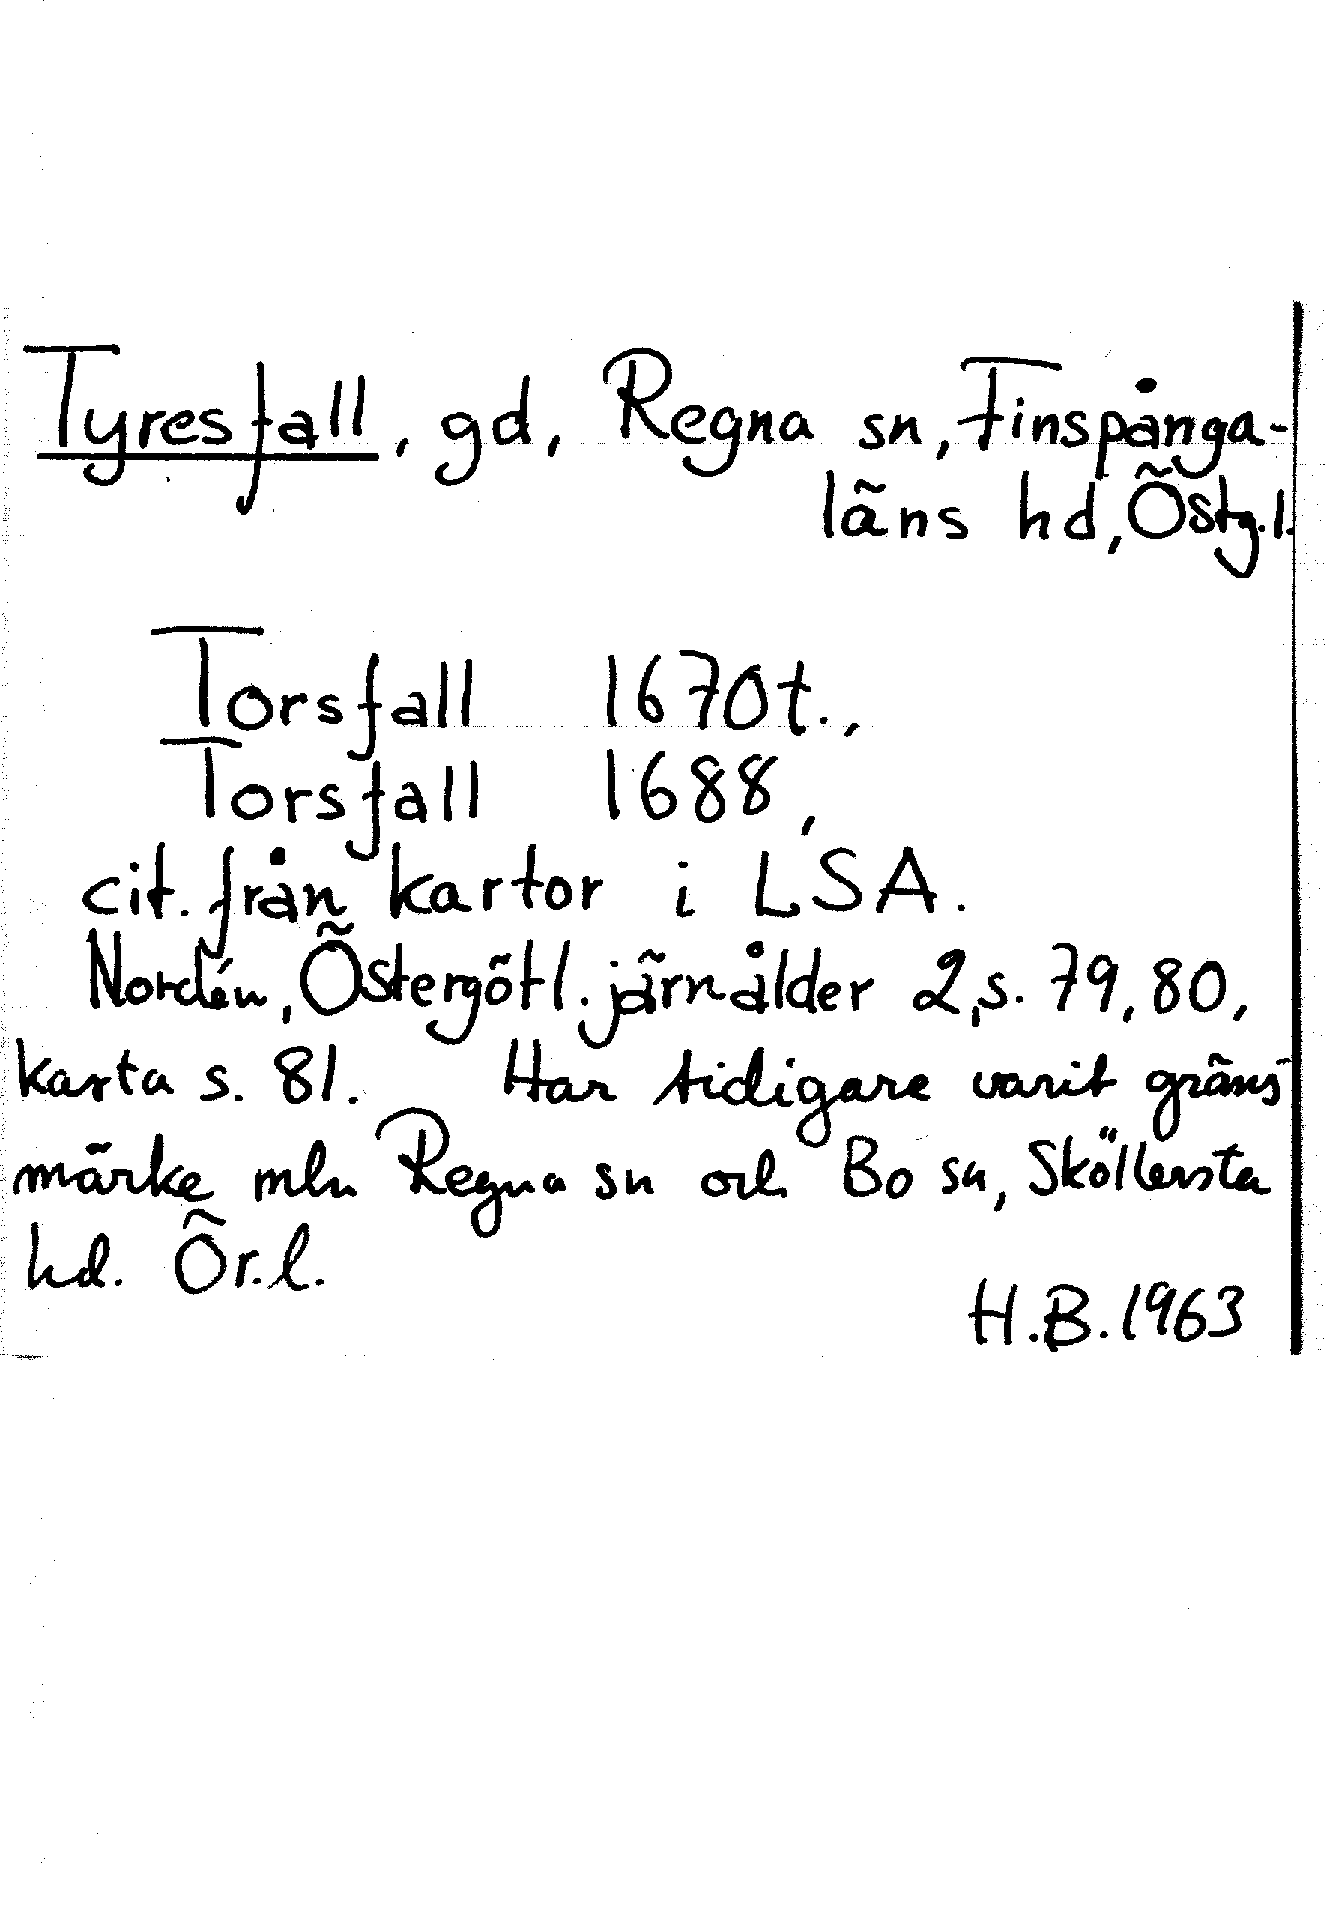 Tyresfall, gd, Regna sn, Finspånga-
läns hd, Östg.l.
Torsfall 1670t.,
Torsfall 1688,
cit. från kartor i LSA.
Nordén, Östergötl. järnålder 2, s. 79, 80,
karta s. 81. Har tidigare varit gräns-
märke mln Regna sn och Bo sn, Sköllersta
hd. Ör.l.
H.B. 1963